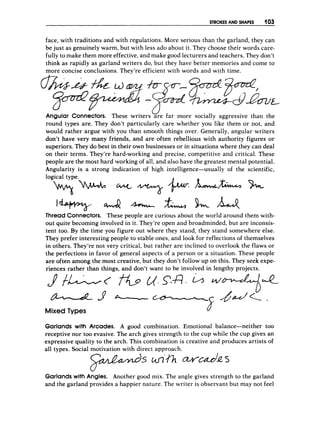 STROKES AND SHAPES 103
face, with traditions and with regulations. More serious than the garland, they can
be just as genuinely warm, but with less ado about it. They choose their words care-
fully to make them more effective, and make good lecturers and teachers. They don't
think as rapidly as garland writers do, but they have better memories and come to
more concise conclusions. They're efficient with words and with time.
This is the way to go – good food,
good friends – good times – Love
Angular Connectors. These writers are far more socially aggressive than the
round types are. They don't particularly care whether you like them or not, and
would rather argue with you than smooth things over. Generally, angular writers
don't have very many friends, and are often rebellious with authority figures or
superiors. They do best in their own businesses or in situations where they can deal
on their terms. They're hard-working and precise, competitive and critical. These
people are the most hard working of all, and also have the greatest mental potential.
Angularity is a strong indication of high intelligence—usually of the scientific,
logical type.
My needs are very few. Sometimes I'm
happy and some times I'm sad
Thread Connectors. These people are curious about the world around them with-
out quite becoming involved in it. They're open and broadminded, but are inconsis-
tent too. By the time you figure out where they stand, they stand somewhere else.
They prefer interesting people to stable ones, and look for reflections of themselves
in others. They're not very critical, but rather are inclined to overlook the flaws or
the perfections in favor of general aspects of a person or a situation. These people
are often among the most creative, but they don't follow up on this. They seek expe-
riences rather than things, and don't want to be involved in lengthy projects.
I think the U.S.A. is wonderful
I
Mixed Types
Garlands with Arcades. A good combination. Emotional balance—neither too
receptive nor too evasive. The arch gives strength to the cup while the cup gives an
expressive quality to the arch. This combination is creative and produces artists of
all types. Social motivation with direct approach.
Garlands with arcades
Garlands with Angles. Another good mix. The angle gives strength to the garland
and the garland provides a happier nature. The writer is observant but may not feel